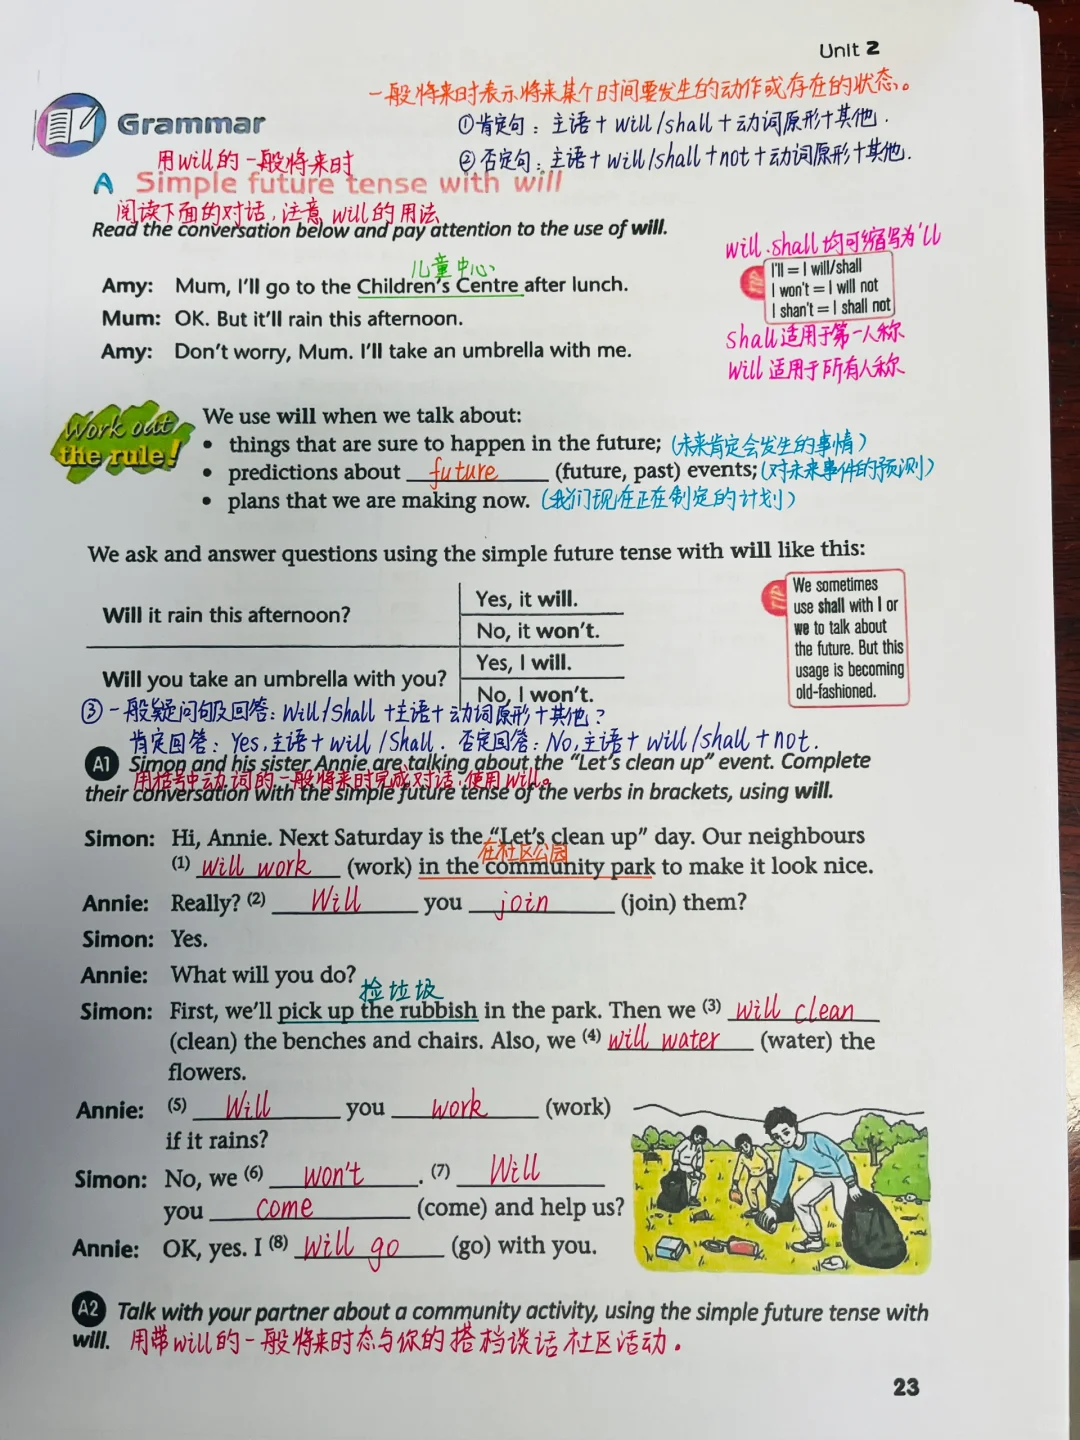 Unit 2
一般将来时表示将来某个时间要发生的动作或存在的状态。
Grammar
①肯定句：主语+will/shall+动词原形+其他.
用will的一般将来时
②否定句：主语+will/shall+not+动词原形+其他.
A Simple future tense with will
阅读下面的对话，注意will的用法
Read the conversation below and pay attention to the use of will.
will、shall均可缩写为'll
儿童中心
TIP
I'll = I will/shall
I won't = I will not
I shan't = I shall not
Amy: Mum, I'll go to the Children's Centre after lunch.
Mum: OK. But it'll rain this afternoon.
shall适用于第一人称
Amy: Don't worry, Mum. I'll take an umbrella with me.
will适用于所有人称
Work out
the rule!
We use will when we talk about:
• things that are sure to happen in the future; (未来肯定会发生的事情)
• predictions about future (future, past) events; (对未来事件的预测)
• plans that we are making now. (我们现在正在制定的计划)
We ask and answer questions using the simple future tense with will like this:
Will it rain this afternoon?
Yes, it will.
No, it won't.
Will you take an umbrella with you?
Yes, I will.
No, I won't.
TIP
We sometimes
use shall with I or
we to talk about
the future. But this
usage is becoming
old-fashioned.
③一般疑问句及回答：Will/Shall+主语+动词原形+其他？
肯定回答：Yes,主语+will/shall. 否定回答：No,主语+will/shall+not.
A1 Simon and his sister Annie are talking about the "Let's clean up" event. Complete
用括号中动词的一般将来时完成对话，使用will。
their conversation with the simple future tense of the verbs in brackets, using will.
Simon: Hi, Annie. Next Saturday is the "Let's clean up" day. Our neighbours
在社区公园
(1) will work (work) in the community park to make it look nice.
Annie: Really? (2) Will you join (join) them?
Simon: Yes.
Annie: What will you do?
捡垃圾
Simon: First, we'll pick up the rubbish in the park. Then we (3) will clean
(clean) the benches and chairs. Also, we (4) will water (water) the
flowers.
Annie: (5) Will you work (work)
if it rains?
Simon: No, we (6) won't. (7) Will
you come (come) and help us?
Annie: OK, yes. I (8) will go (go) with you.
A2 Talk with your partner about a community activity, using the simple future tense with
will. 用带will的一般将来时态与你的搭档谈话社区活动。
23